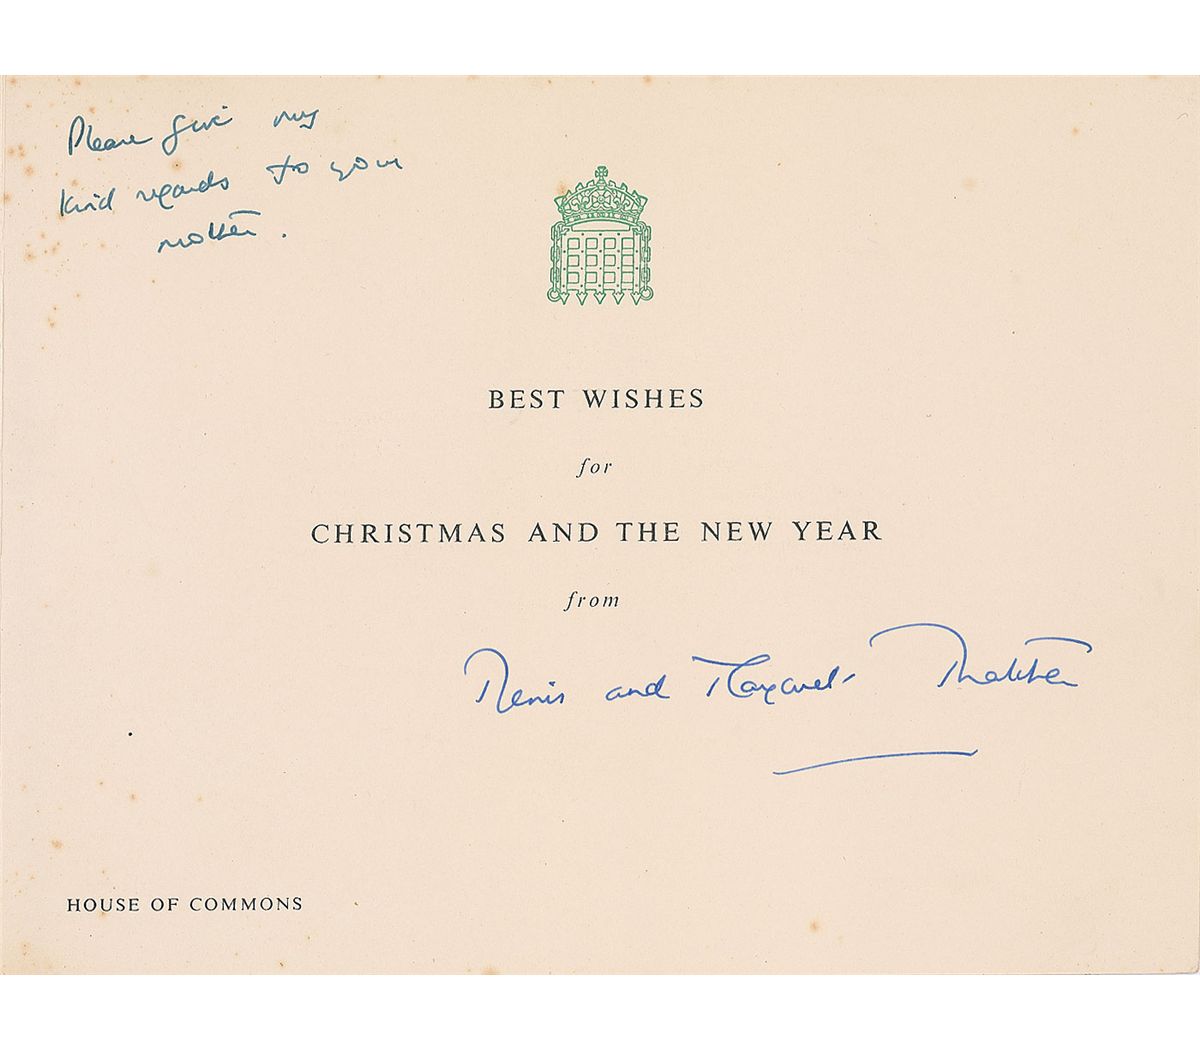 Please give my
kind regards to your
mother.
BEST WISHES
for
CHRISTMAS AND THE NEW YEAR
from
Denis and Margaret Thatcher
HOUSE OF COMMONS